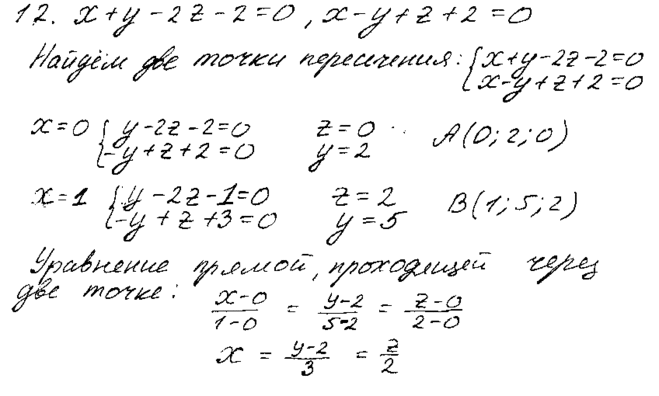 12. x+y-2z-2=0, x-y+z+2=0
Найдём две точки пересичения: { x+y-2z-2=0
x-y+z+2=0
x=0 { y-2z-2=0 z=0 A(0;2;0)
-y+z+2=0 y=2
x=1 { y-2z-1=0 z=2 B(1;5;2)
-y+z+3=0 y=5
Уравнение прямой, проходящей через
две точке: (x-0)/(1-0) = (y-2)/(5-2) = (z-0)/(2-0)
x = (y-2)/3 = z/2